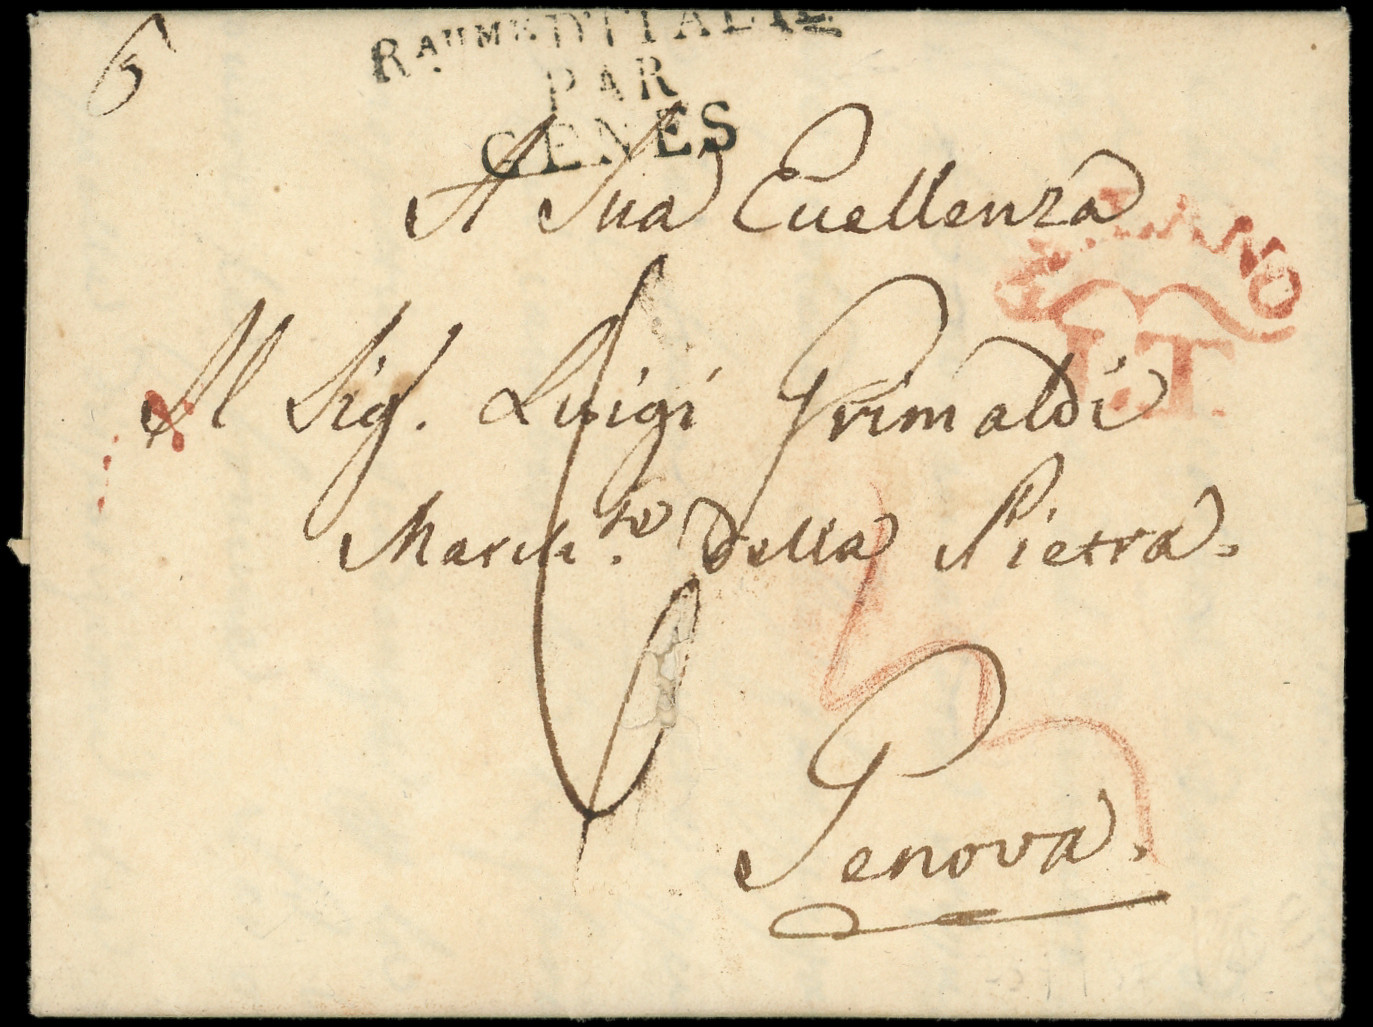 5
RAUME D'ITALIE
PAR
GENES
A Sua Eccellenza
MILANO
L.T.
Al Sig.r Luigi Grimaldi
March.se della Pietra.
6
Genova.